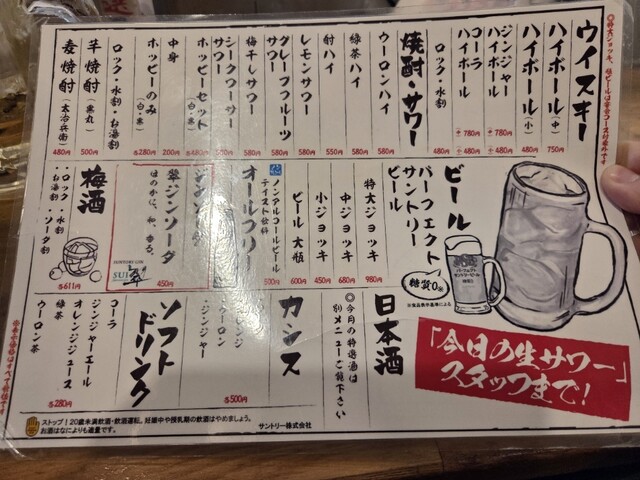 ウイスキー
ハイボール(中) 750円
ハイボール(小) 480円
ジンジャーハイボール 480円 780円
コーラハイボール 480円 780円
ロック・水割 480円
焼酎・サワー
ウーロンハイ 580円
緑茶ハイ 580円
酎ハイ 550円
レモンサワー 580円
グレープフルーツサワー 580円
梅干しサワー 580円
シークワーサーサワー
ホッピーセット(白・黒) 480円
ホッピーのみ(白・黒) 280円
中身 200円
ロック・水割・お湯割
芋焼酎 500円
麦焼酎 480円
ビール
パーフェクトサントリービール
糖質0
特大ジョッキ 980円
中ジョッキ 680円
小ジョッキ 450円
ビール大瓶 600円
ノンアルコールビールテイスト飲料
オールフリー 500円
翠ジンソーダ 450円
SUI
翠
梅酒
・ロック・水割
・お湯割・ソーダ割
各611円
日本酒
◎今月の特選酒は
別メニューご覧下さい
カシス
・ウーロン
・ジンジャー
各500円
ソフトドリンク
コーラ
ジンジャーエール
オレンジジュース
緑茶
ウーロン茶
各280円
「今日の生サワー」
スタッフまで!
ストップ!20歳未満飲酒・飲酒運転。妊娠中や授乳期の飲酒はやめましょう。
お酒はなによりも適量です。
サントリー株式会社